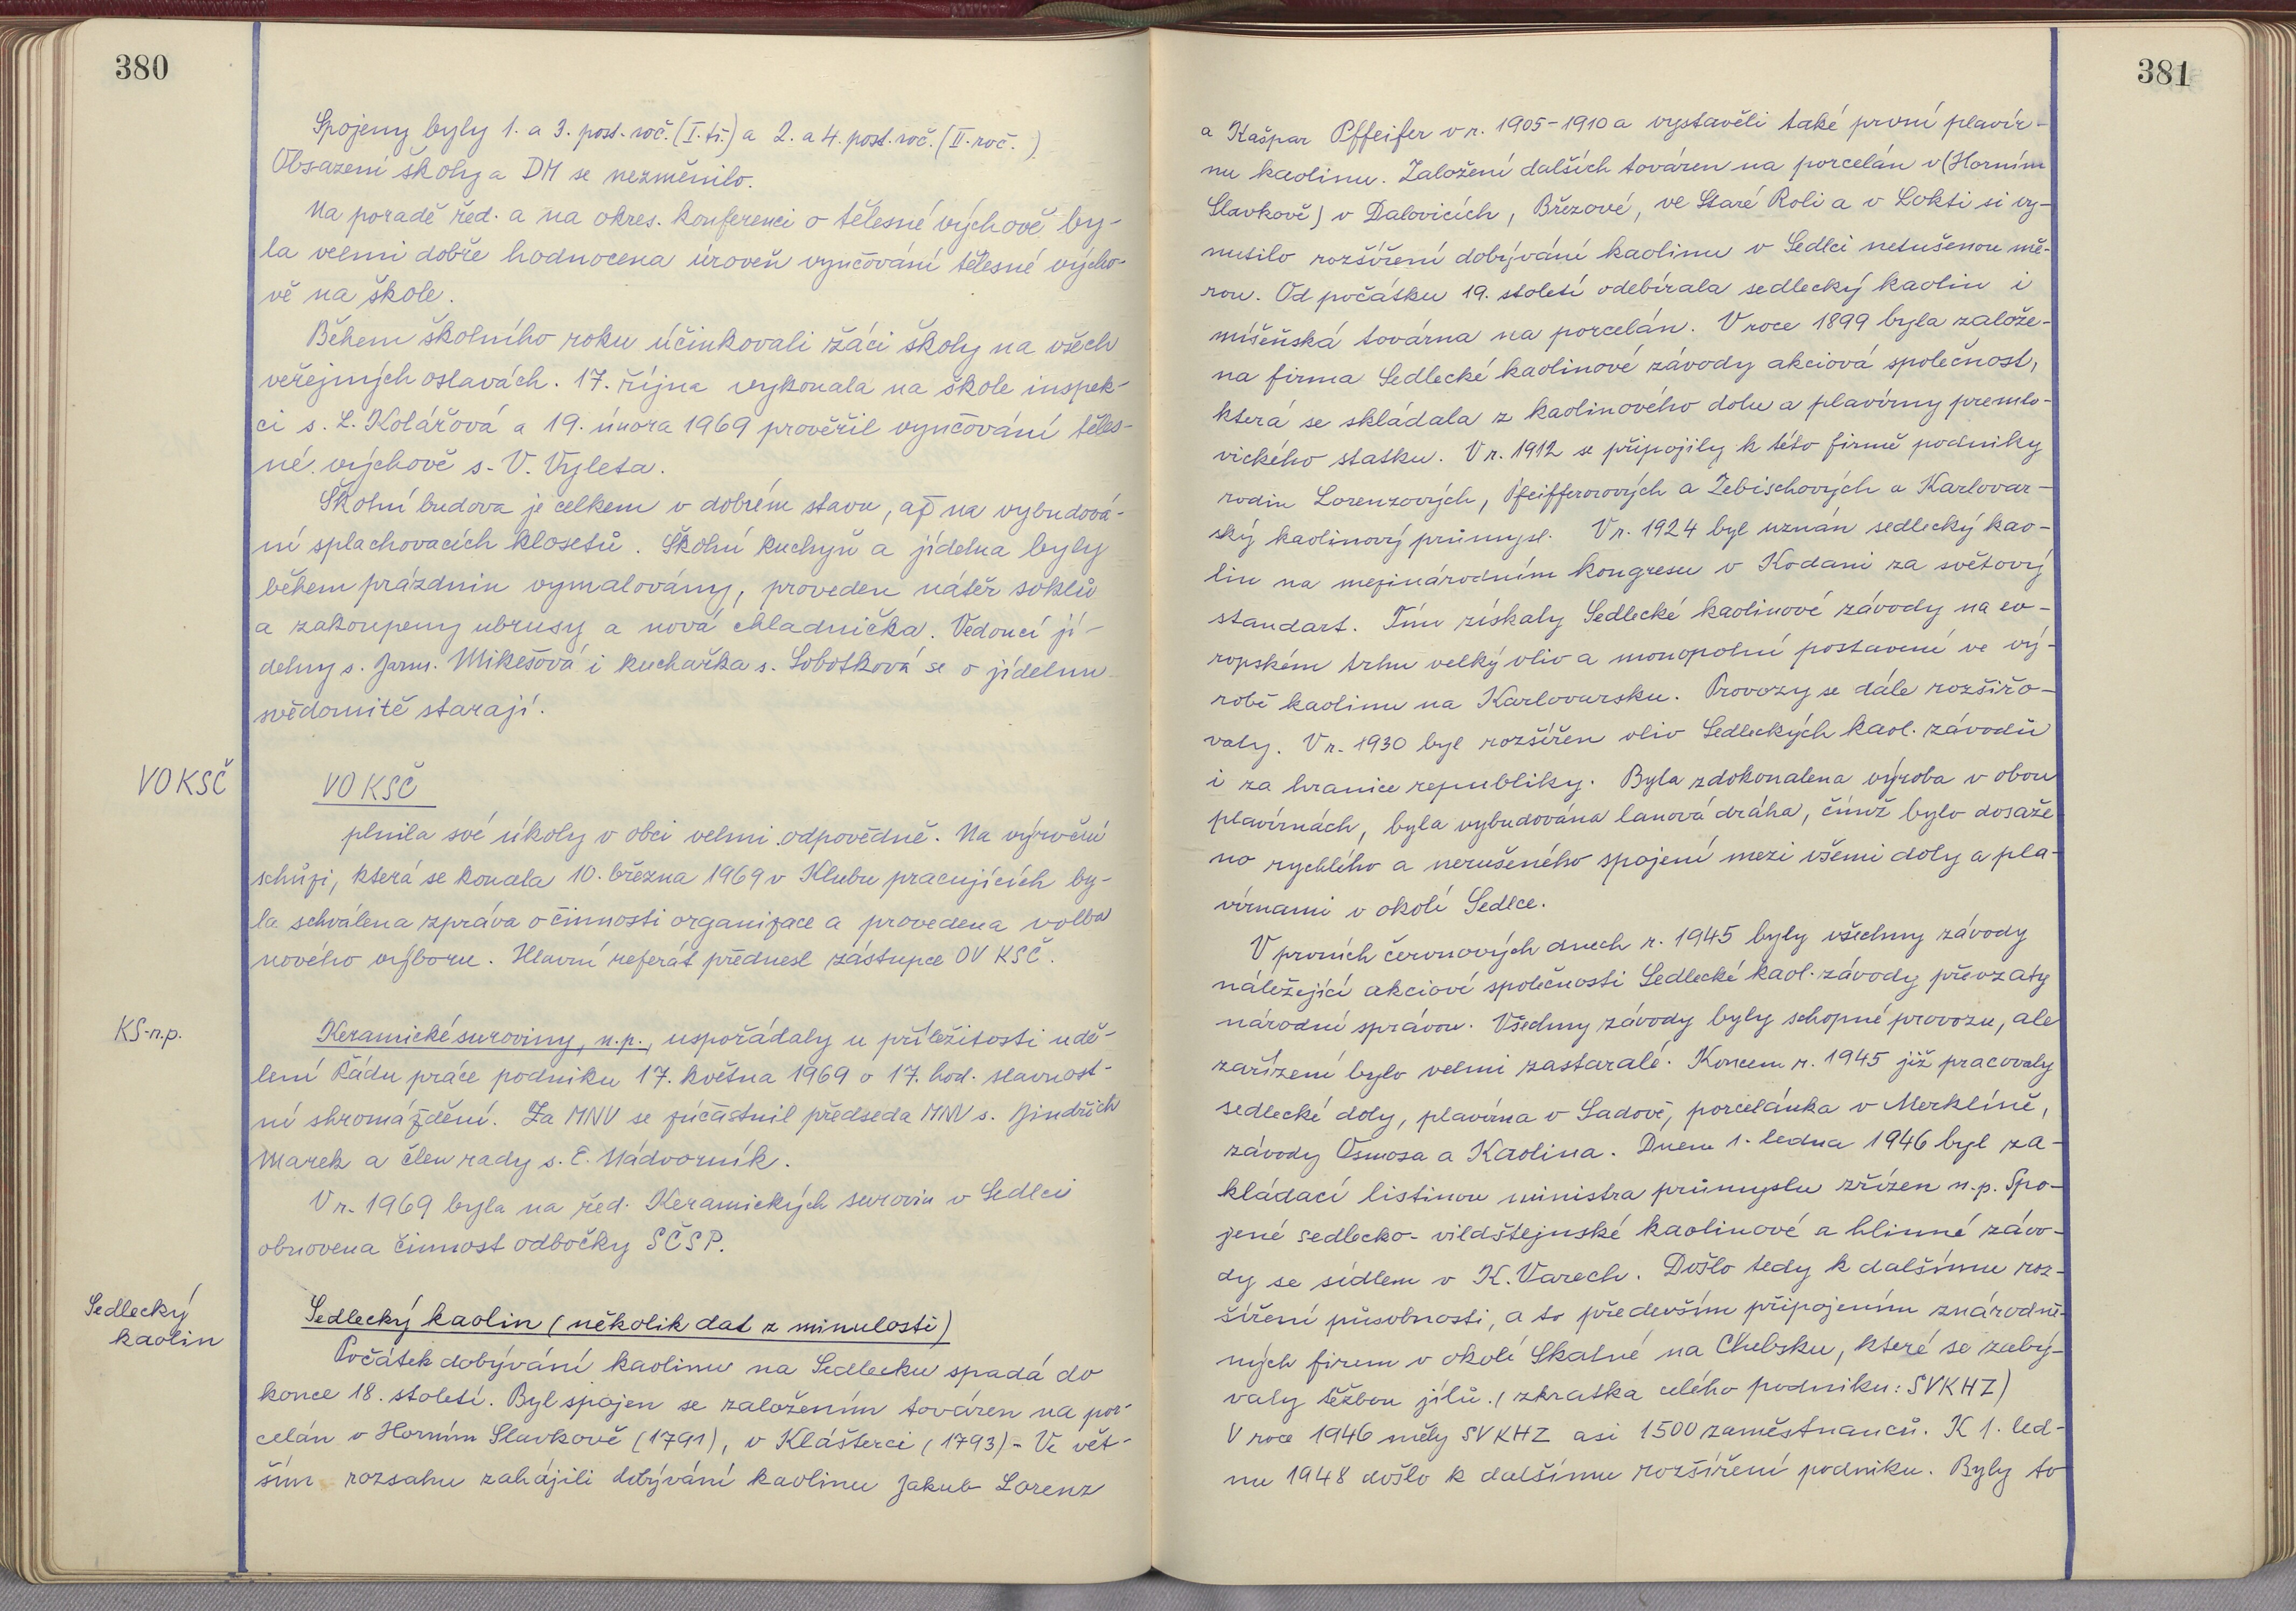 380
Spojeny byly 1. a 3. post. roč. (I. tř.) a 2. a 4. post. roč. (II. roč.).
Obsazení školy a DM se nezměnilo.
Na poradě řed. a na okres. konferenci o tělesné výchově by-
la velmi dobře hodnocena úroveň vyučování tělesné výcho-
vě na škole.
Během školního roku účinkovali žáci školy na všech
veřejných oslavách. 17. října vykonala na škole inspek-
ci s. L. Kolářová a 19. února 1969 prověřil vyučování těles-
né výchově s. V. Vyleta.
Školní budova je celkem v dobrém stavu, až na vybudová-
ní splachovacích klosetů. Školní kuchyň a jídelna byly
během prázdnin vymalovány, proveden nátěr soklů
a zakoupeny ubrusy a nová chladnička. Vedoucí jí-
delny s. Jarm. Mikešová i kuchařka s. Sobotková se o jídelnu
svědomitě starají.
VO KSČ
VO KSČ
plnila své úkoly v obci velmi odpovědně. Na výroční
schůzi, která se konala 10. března 1969 v Klubu pracujících by-
la schválena zpráva o činnosti organizace a provedena volba
nového výboru. Hlavní referát přednesl zástupce OV KSČ.
KS-n.p.
Keramické suroviny, n.p., uspořádaly u příležitosti udě-
lení Řádu práce podniku 17. května 1969 v 17. hod. slavnost-
ní shromáždění. Za MNV se zúčastnil předseda MNV s. Jindřich
Marek a člen rady s. E. Nádvorník.
V r. 1969 byla na řed. Keramických surovin v Sedlci
obnovena činnost odbočky SČSP.
Sedlecký
kaolin
Sedlecký kaolin (několik dat z minulosti)
Počátek dobývání kaolinu na Sedlecku spadá do
konce 18. století. Byl spojen se založením továren na por-
celán v Horním Slavkově (1791), v Klášterci (1793) - Ve vět-
ším rozsahu zahájili dobývání kaolinu Jakub Lorenz
381
a Kašpar Pffeifer v r. 1905-1910 a vystavěli také první plavír-
nu kaolinu. Založení dalších továren na porcelán v (Horním
Slavkově) v Dalovicích, Březové, ve Staré Roli a v Lokti si vy-
nutilo rozšíření dobývání kaolinu v Sedlci netušenou mě-
rou. Od počátku 19. století odebírala sedlecký kaolin i
míšeňská továrna na porcelán. V roce 1899 byla založe-
na firma Sedlecké kaolinové závody akciová společnost,
která se skládala z kaolinového dolu a plavírny premlo-
vického statku. V r. 1912 se připojily k této firmě podniky
rodin Lorenzových, Pfeifferových a Zebischových a Karlovar-
ský kaolinový průmysl. V r. 1924 byl uznán sedlecký kao-
lin na mezinárodním kongresu v Kodani za světový
standart. Tím získaly Sedlecké kaolinové závody na ev-
ropském trhu velký vliv a monopolní postavení ve vý-
robě kaolinu na Karlovarsku. Provozy se dále rozšiřo-
valy. V r. 1930 byl rozšířen vliv Sedleckých kaol. závodů
i za hranice republiky. Byla zdokonalena výroba v obou
plavírnách, byla vybudována lanová dráha, čímž bylo dosaže
no rychlého a nerušeného spojení mezi všemi doly a pla-
vírnami v okolí Sedlce.
V prvních červnových dnech r. 1945 byly všechny závody
náležející akciové společnosti Sedlecké kaol. závody převzaty
národní správou. Všechny závody byly schopné provozu, ale
zařízení bylo velmi zastaralé. Koncem r. 1945 již pracovaly
sedlecké doly, plavírna v Sadově, porcelánka v Merklíně,
závody Osmosa a Kaolina. Dnem 1. ledna 1946 byl za-
kládací listinou ministra průmyslu zřízen n.p. Spo-
jené sedlecko-vildštejnské kaolinové a hlinné závo-
dy se sídlem v K. Varech. Došlo tedy k dalšímu roz-
šíření působnosti, a to především připojením znárodně-
ných firem v okolí Skalné na Chebsku, které se zabý-
valy těžbou jílů. (zkratka celého podniku: SVKHZ)
V roce 1946 měly SVKHZ asi 1500 zaměstnanců. K 1. led-
nu 1948 došlo k dalšímu rozšíření podniku. Byly to